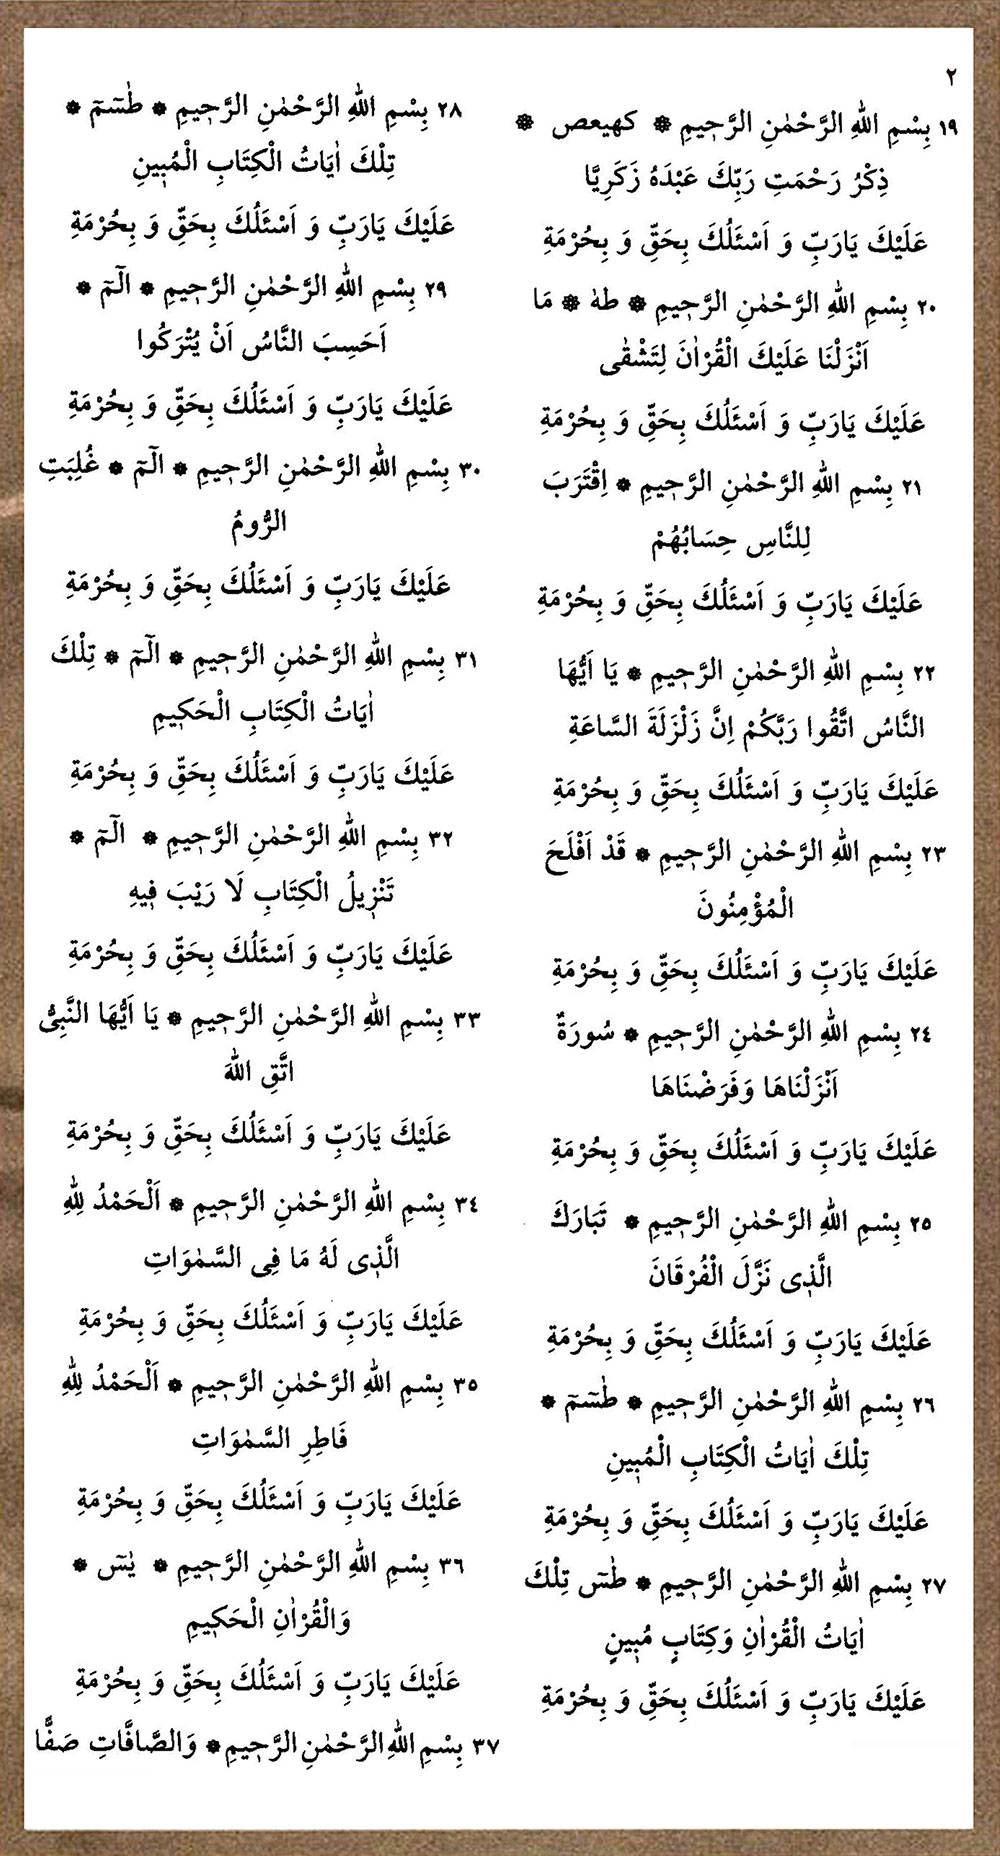 ٢
١٩ بِسْمِ اللهِ الرَّحْمٰنِ الرَّحِيمِ ۞ كهيعص ۞
ذِكْرُ رَحْمَتِ رَبِّكَ عَبْدَهُ زَكَرِيَّا
عَلَيْكَ يَارَبِّ وَ اَسْئَلُكَ بِحَقِّ وَ بِحُرْمَةِ
٢٠ بِسْمِ اللهِ الرَّحْمٰنِ الرَّحِيمِ ۞ طهٰ ۞ مَا
اَنْزَلْنَا عَلَيْكَ الْقُرْاٰنَ لِتَشْقٰى
عَلَيْكَ يَارَبِّ وَ اَسْئَلُكَ بِحَقِّ وَ بِحُرْمَةِ
٢١ بِسْمِ اللهِ الرَّحْمٰنِ الرَّحِيمِ ۞ اِقْتَرَبَ
لِلنَّاسِ حِسَابُهُمْ
عَلَيْكَ يَارَبِّ وَ اَسْئَلُكَ بِحَقِّ وَ بِحُرْمَةِ
٢٢ بِسْمِ اللهِ الرَّحْمٰنِ الرَّحِيمِ ۞ يَا اَيُّهَا
النَّاسُ اتَّقُوا رَبَّكُمْ اِنَّ زَلْزَلَةَ السَّاعَةِ
عَلَيْكَ يَارَبِّ وَ اَسْئَلُكَ بِحَقِّ وَ بِحُرْمَةِ
٢٣ بِسْمِ اللهِ الرَّحْمٰنِ الرَّحِيمِ ۞ قَدْ اَفْلَحَ
الْمُؤْمِنُونَ
عَلَيْكَ يَارَبِّ وَ اَسْئَلُكَ بِحَقِّ وَ بِحُرْمَةِ
٢٤ بِسْمِ اللهِ الرَّحْمٰنِ الرَّحِيمِ ۞ سُورَةٌ
اَنْزَلْنَاهَا وَفَرَضْنَاهَا
عَلَيْكَ يَارَبِّ وَ اَسْئَلُكَ بِحَقِّ وَ بِحُرْمَةِ
٢٥ بِسْمِ اللهِ الرَّحْمٰنِ الرَّحِيمِ ۞ تَبَارَكَ
الَّذِى نَزَّلَ الْفُرْقَانَ
عَلَيْكَ يَارَبِّ وَ اَسْئَلُكَ بِحَقِّ وَ بِحُرْمَةِ
٢٦ بِسْمِ اللهِ الرَّحْمٰنِ الرَّحِيمِ ۞ طٰسٓمٓ ۞
تِلْكَ اٰيَاتُ الْكِتَابِ الْمُبِينِ
عَلَيْكَ يَارَبِّ وَ اَسْئَلُكَ بِحَقِّ وَ بِحُرْمَةِ
٢٧ بِسْمِ اللهِ الرَّحْمٰنِ الرَّحِيمِ ۞ طٰسٓ تِلْكَ
اٰيَاتُ الْقُرْاٰنِ وَكِتَابٍ مُبِينٍ
عَلَيْكَ يَارَبِّ وَ اَسْئَلُكَ بِحَقِّ وَ بِحُرْمَةِ
٢٨ بِسْمِ اللهِ الرَّحْمٰنِ الرَّحِيمِ ۞ طٰسٓمٓ ۞
تِلْكَ اٰيَاتُ الْكِتَابِ الْمُبِينِ
عَلَيْكَ يَارَبِّ وَ اَسْئَلُكَ بِحَقِّ وَ بِحُرْمَةِ
٢٩ بِسْمِ اللهِ الرَّحْمٰنِ الرَّحِيمِ ۞ الٓمٓ ۞
اَحَسِبَ النَّاسُ اَنْ يُتْرَكُوا
عَلَيْكَ يَارَبِّ وَ اَسْئَلُكَ بِحَقِّ وَ بِحُرْمَةِ
٣٠ بِسْمِ اللهِ الرَّحْمٰنِ الرَّحِيمِ ۞ الٓمٓ ۞ غُلِبَتِ
الرُّومُ
عَلَيْكَ يَارَبِّ وَ اَسْئَلُكَ بِحَقِّ وَ بِحُرْمَةِ
٣١ بِسْمِ اللهِ الرَّحْمٰنِ الرَّحِيمِ ۞ الٓمٓ ۞ تِلْكَ
اٰيَاتُ الْكِتَابِ الْحَكِيمِ
عَلَيْكَ يَارَبِّ وَ اَسْئَلُكَ بِحَقِّ وَ بِحُرْمَةِ
٣٢ بِسْمِ اللهِ الرَّحْمٰنِ الرَّحِيمِ ۞ الٓمٓ ۞
تَنْزِيلُ الْكِتَابِ لَا رَيْبَ فِيهِ
عَلَيْكَ يَارَبِّ وَ اَسْئَلُكَ بِحَقِّ وَ بِحُرْمَةِ
٣٣ بِسْمِ اللهِ الرَّحْمٰنِ الرَّحِيمِ ۞ يَا اَيُّهَا النَّبِىُّ
اتَّقِ اللهَ
عَلَيْكَ يَارَبِّ وَ اَسْئَلُكَ بِحَقِّ وَ بِحُرْمَةِ
٣٤ بِسْمِ اللهِ الرَّحْمٰنِ الرَّحِيمِ ۞ اَلْحَمْدُ لِلّٰهِ
الَّذِى لَهُ مَا فِى السَّمٰوَاتِ
عَلَيْكَ يَارَبِّ وَ اَسْئَلُكَ بِحَقِّ وَ بِحُرْمَةِ
٣٥ بِسْمِ اللهِ الرَّحْمٰنِ الرَّحِيمِ ۞ اَلْحَمْدُ لِلّٰهِ
فَاطِرِ السَّمٰوَاتِ
عَلَيْكَ يَارَبِّ وَ اَسْئَلُكَ بِحَقِّ وَ بِحُرْمَةِ
٣٦ بِسْمِ اللهِ الرَّحْمٰنِ الرَّحِيمِ ۞ يٰسٓ ۞
وَالْقُرْاٰنِ الْحَكِيمِ
عَلَيْكَ يَارَبِّ وَ اَسْئَلُكَ بِحَقِّ وَ بِحُرْمَةِ
٣٧ بِسْمِ اللهِ الرَّحْمٰنِ الرَّحِيمِ ۞ وَالصَّافَّاتِ صَفًّا